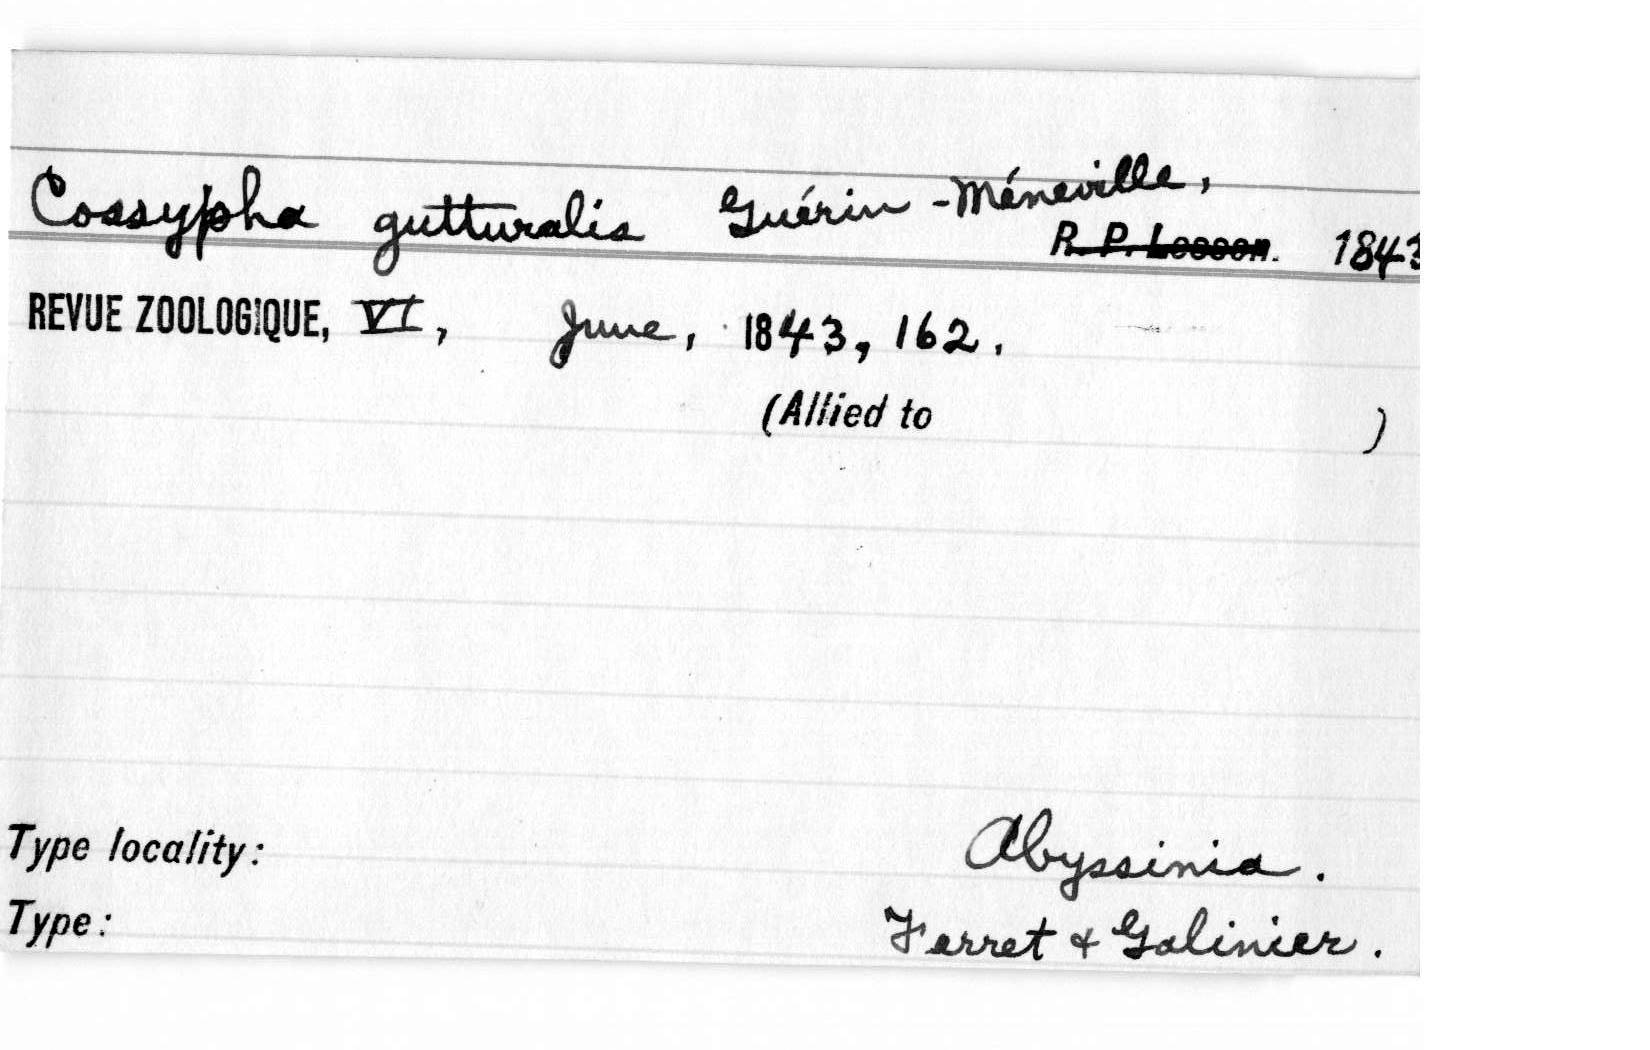 Cossypha gutturalis Guérin-Méneville,
R. P. Lesson. 1843
REVUE ZOOLOGIQUE, VI, June, 1843, 162.
(Allied to )
Type locality: Abyssinia.
Type: Ferret & Galinier.